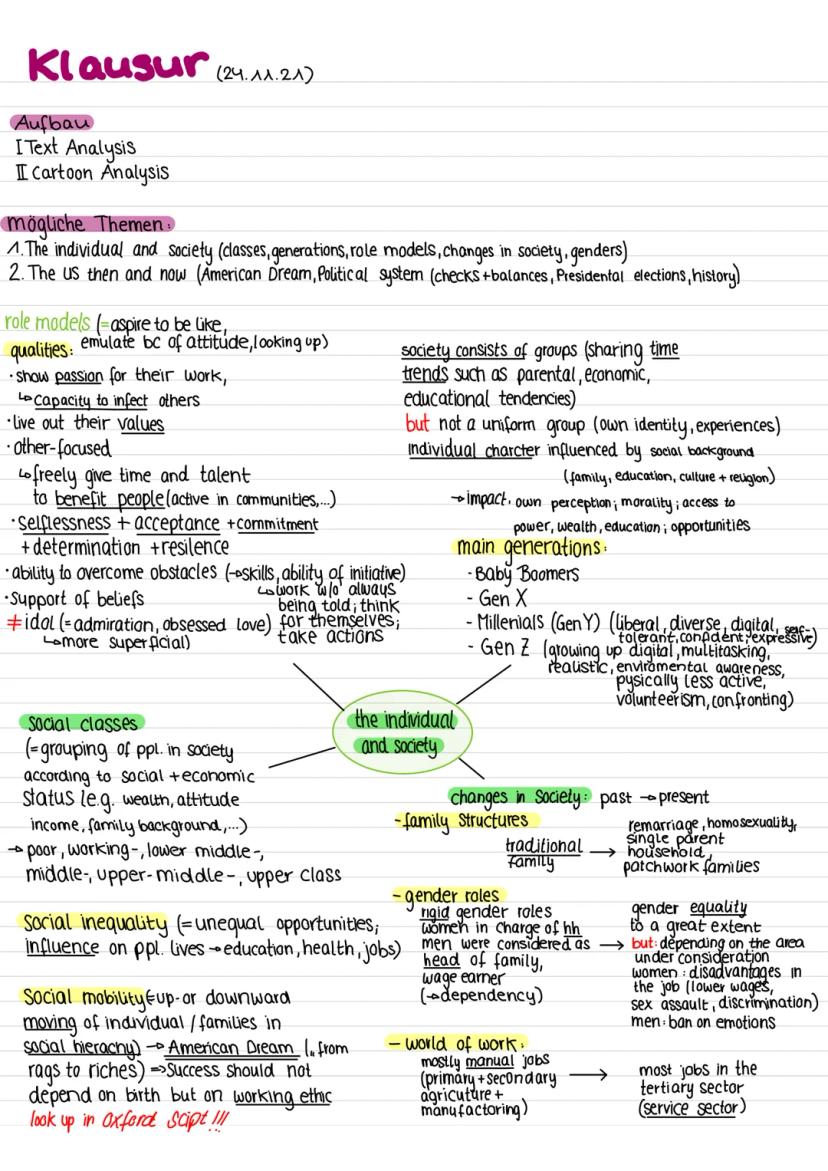 Klausur (24.11.21)
Aufbau
I Text Analysis
II Cartoon Analysis
mögliche Themen:
1. The individual and society (classes, generations, role models, changes in society, genders)
2. The US then and now (American Dream, Political system (checks + balances, Presidental elections, history)
role models (= aspire to be like,
emulate bc of attitude, looking up)
qualities:
· show passion for their work,
↳ Capacity to infect others
· live out their values
· other-focused
↳ freely give time and talent
to benefit people (active in communities,...)
· Selflessness + acceptance + commitment
+ determination + resilence
· ability to overcome obstacles (→ skills, ability of initiative)
↳ work w/o always
being told; think
for themselves;
take actions
· support of beliefs
≠ idol (= admiration, obsessed love)
↳ more superficial)
society consists of groups (sharing time
trends such as parental, economic,
educational tendencies)
but not a uniform group (own identity, experiences)
individual charcter influenced by social background
(family, education, culture + religion)
→ impact: own perception; morality; access to
power, wealth, education; opportunities
main generations:
- Baby Boomers
- Gen X
- Millenials (Gen Y) (liberal, diverse, digital, self-
tolerant, confident, expressive)
- Gen Z (growing up digital, multitasking,
realistic, enviromental awareness,
pysically less active,
volunteerism, confronting)
the individual
and society
social classes
(= grouping of ppl. in society
according to social + economic
status (e.g. wealth, attitude
income, family background,...)
→ poor, working-, lower middle-,
middle-, upper-middle-, upper class
Social inequality (= unequal opportunities;
influence on ppl. lives → education, health, jobs)
Social mobility (= up- or downward
moving of individual / families in
social hierachy) → American Dream („from
rags to riches) ⇒ Success should not
depend on birth but on working ethic
look up in Oxford Scipt!!!
changes in Society: past → present
- family structures
traditional
family →
remarriage, homosexuality,
single parent
household,
patchwork families
- gender roles
rigid gender roles
women in charge of hh
men were considered as →
head of family,
wage earner
(→ dependency)
gender equality
to a great extent
but: depending on the area
under consideration
women: disadvantages in
the job (lower wages,
sex assault, discrimination)
men: ban on emotions
- world of work:
mostly manual jobs
(primary + secondary →
agricuture +
manufactoring)
most jobs in the
tertiary sector
(service sector)